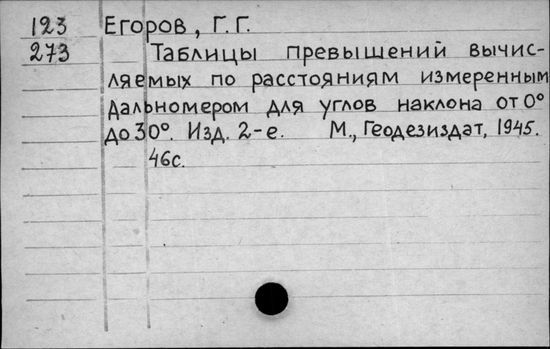 123 Егоров, Г. Г.
273 Таблицы превышений вычис-
ляемых по расстояниям измеренным
дальномером для углов наклона от 0°
до 30°. Изд. 2-е. М., Геодезиздат, 1945.
46с.